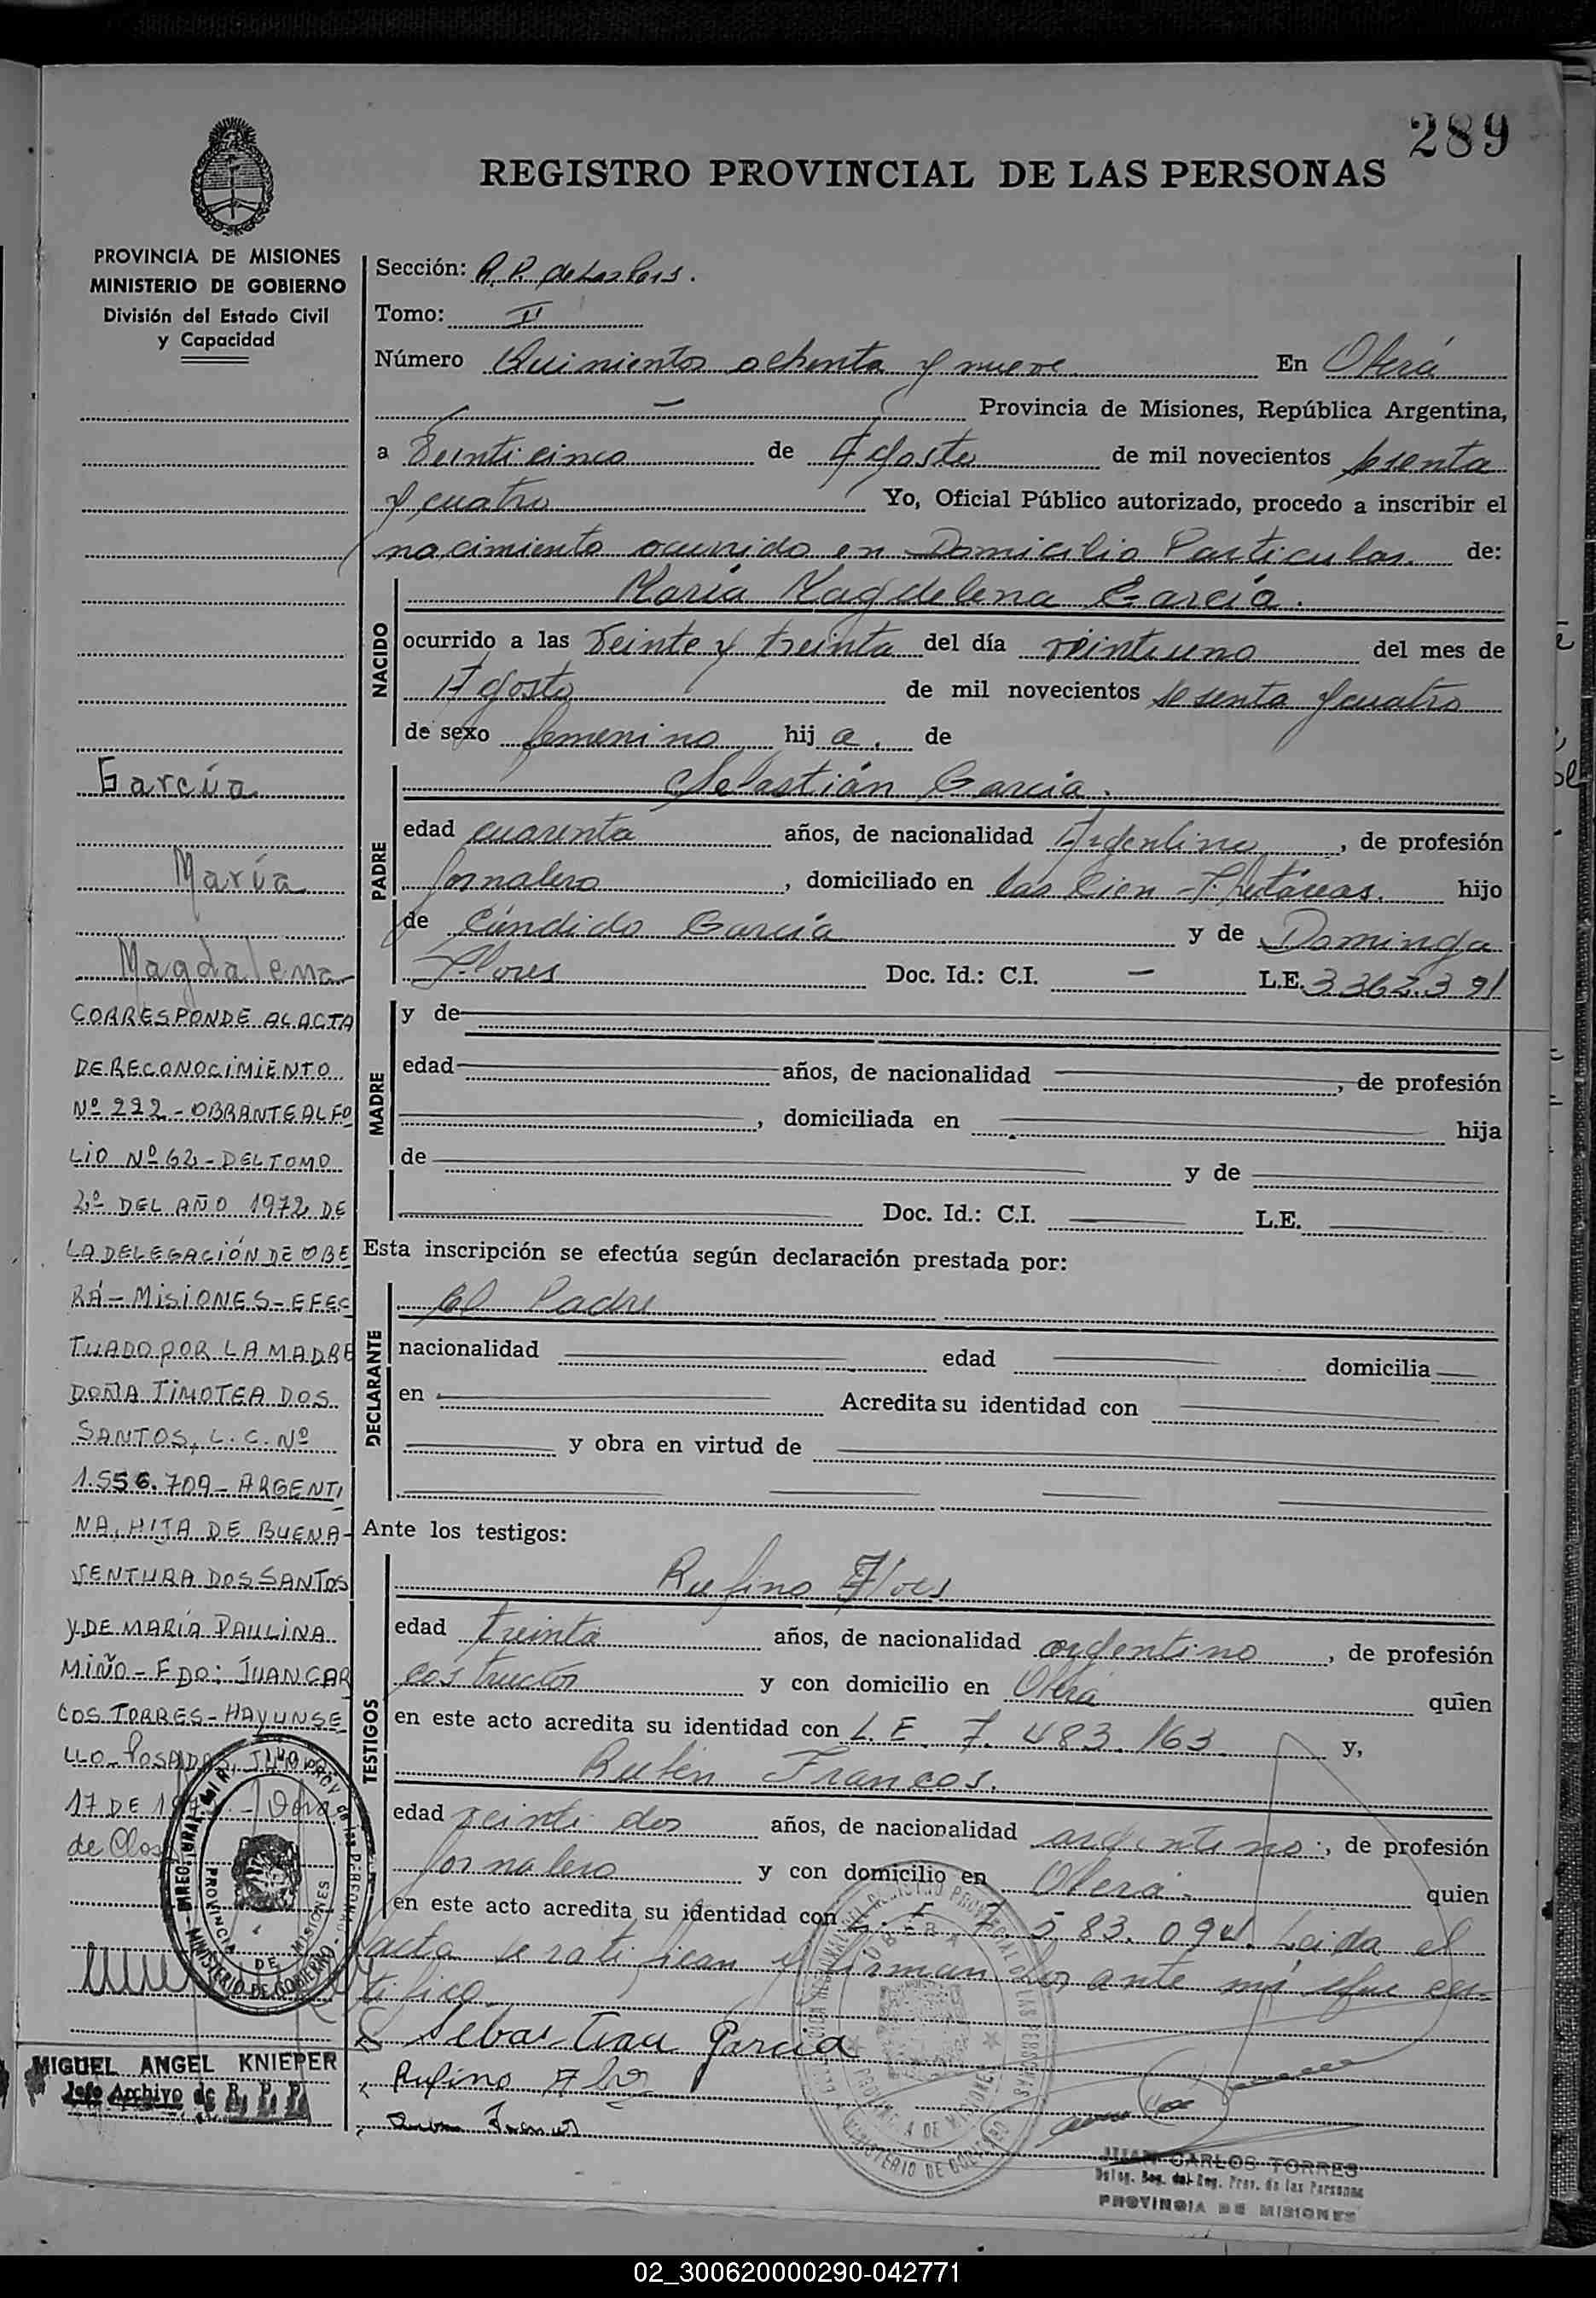 289
REGISTRO PROVINCIAL DE LAS PERSONAS
PROVINCIA DE MISIONES
MINISTERIO DE GOBIERNO
División del Estado Civil
y Capacidad
Sección: R. P. de Las Pers.
Tomo: II
Número Quinientos ochenta y nueve En Oberá
Provincia de Misiones, República Argentina,
a Veinticinco de Agosto de mil novecientos sesenta
y cuatro Yo, Oficial Público autorizado, procedo a inscribir el
nacimiento ocurrido en Domicilio Particular. de:
NACIDO
María Magdelena García.
ocurrido a las Veinte y treinta del día veintiuno del mes de
Agosto de mil novecientos sesenta y cuatro
de sexo femenino hij a. de
PADRE
Sebastián García.
edad cuarenta años, de nacionalidad Argentino, de profesión
Jornalero, domiciliado en las Cien Hectáreas. hijo
de Cándido García y de Dominga
Flores Doc. Id.: C.I. — L.E. 3362.391
MADRE
y de
edad años, de nacionalidad , de profesión
, domiciliada en hija
de y de
Doc. Id.: C.I. L.E.
Esta inscripción se efectúa según declaración prestada por:
DECLARANTE
El Padre
nacionalidad edad domicilia
en Acredita su identidad con
y obra en virtud de
Ante los testigos:
TESTIGOS
Rufino Flores
edad treinta años, de nacionalidad argentino, de profesión
costructor y con domicilio en Oberá quien
en este acto acredita su identidad con L. E. 7. 483. 163 y,
Rubén Francos.
edad veinti dos años, de nacionalidad argentino, de profesión
Jornalero y con domicilio en Oberá. quien
en este acto acredita su identidad con L. E. 7 583. 094. Leida el
acta se ratifican y firman por ante mí que cer-
tifico.
Sebastian Garcia
Rufino
JUAN CARLOS TORRES
Deleg. Reg. del Reg. Prov. de las Personas
PROVINCIA DE MISIONES
García
María
Magdalena
CORRESPONDE AL ACTA
DE RECONOCIMIENTO
Nº 222 - OBRANTE AL FO
LIO Nº 62 - DEL TOMO
2º DEL AÑO 1972 DE
LA DELEGACIÓN DE OBE
RÁ - MISIONES - EFEC
TUADO POR LA MADRE
DOÑA TIMOTEA DOS
SANTOS, L. C. Nº
1.556.709 - ARGENTI
NA, HIJA DE BUENA-
VENTURA DOS SANTOS
Y DE MARÍA PAULINA
MIÑO - FDO: JUAN CAR
LOS TORRES - HAY UN SE
LLO - POSADAS, JULIO
17 DE
de
PROVINCIA DE MISIONES
MINISTERIO DE GOBIERNO
MIGUEL ANGEL KNIEPER
Jefe Archivo de R. P. P.
02_300620000290-042771